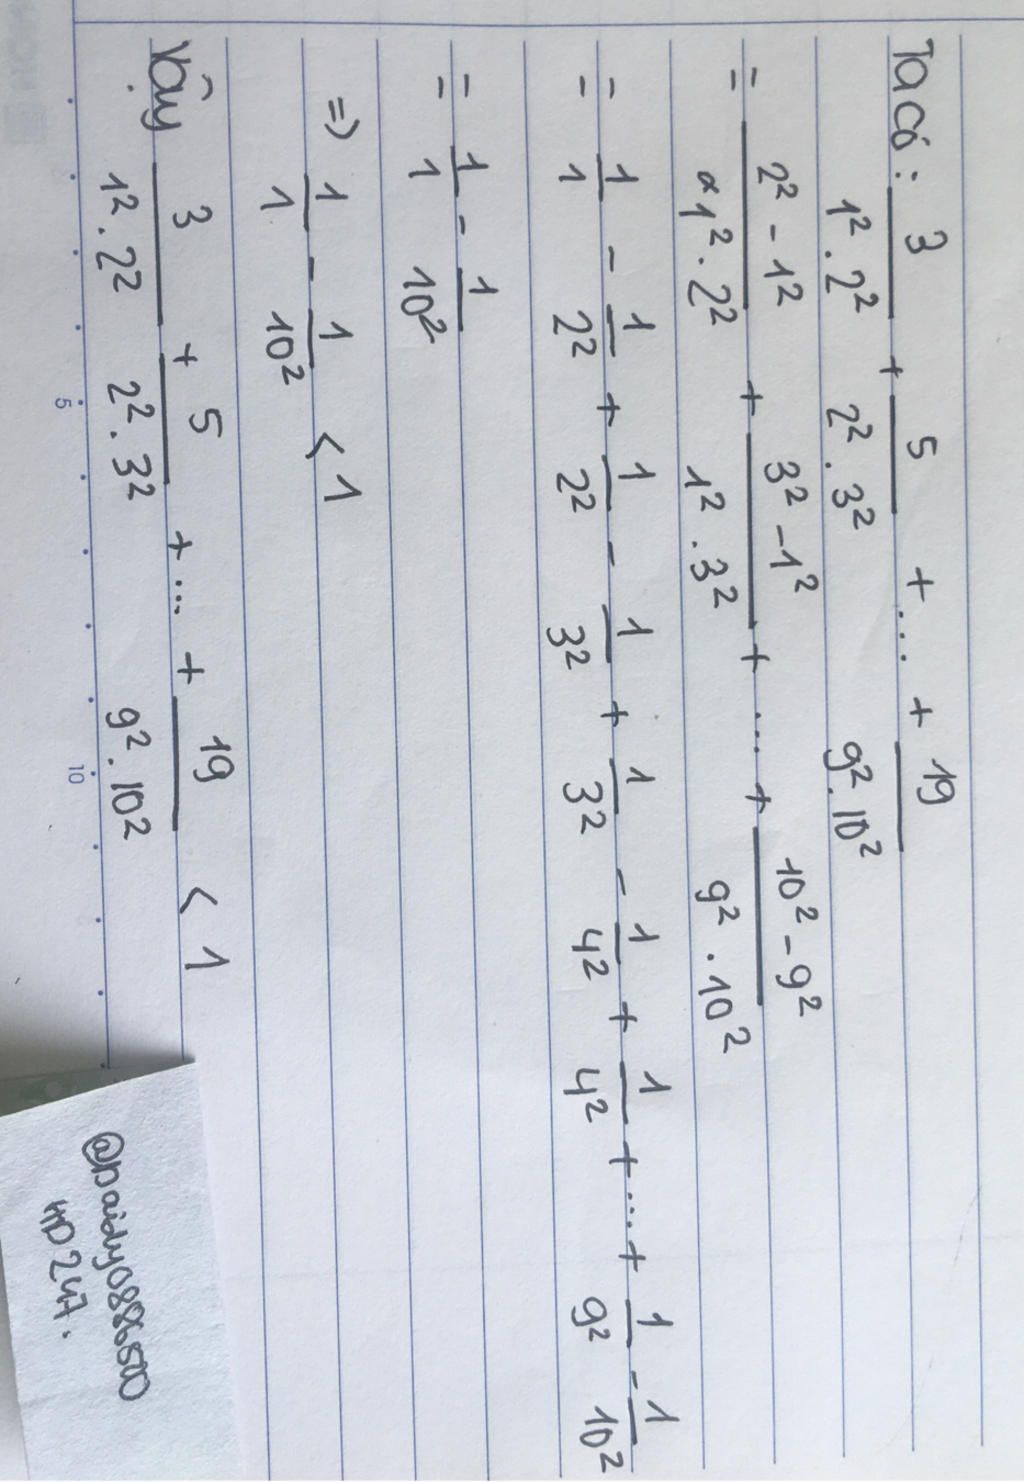 Ta có: 3/(1². 2²) + 5/(2². 3²) + ... + 19/(9². 10²)
= (2² - 1²)/(1². 2²) + (3² - 1²)/(1². 3²) + ... + (10² - 9²)/(9². 10²)
= 1/1 - 1/2² + 1/2² - 1/3² + 1/3² - 1/4² + 1/4² + ... + 1/9² - 1/10²
= 1/1 - 1/10²
=> 1/1 - 1/10² < 1
Vậy 3/(1². 2²) + 5/(2². 3²) + ... + 19/(9². 10²) < 1
5 10
HD247.